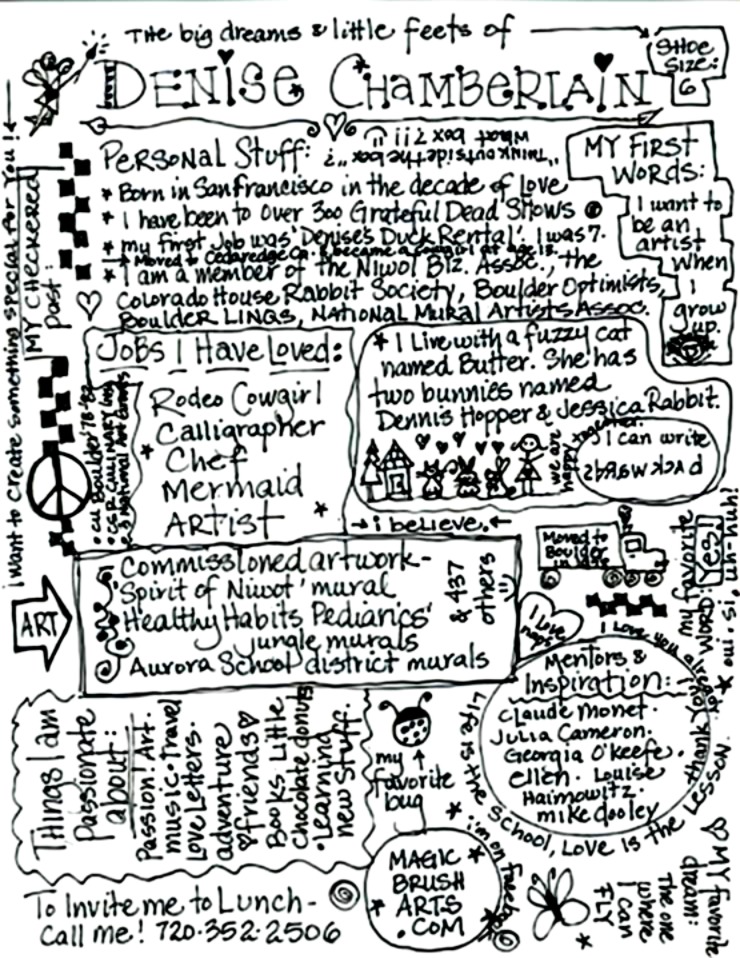 The big dreams & little feets of
SHOE SIZE: 6
DENISE CHAMBERLAIN
Personal Stuff:
"Think outside the box"?
What box?!! :)
* Born in San Francisco in the decade of Love
* I have been to over 300 Grateful Dead Shows
* my first Job was 'Denise's Duck Rental'. I was 7.
→ Moved to Cedaredge Co. & became a cowgirl at age 13.
* I am a member of the Niwot Biz. Assoc., the
Colorado House Rabbit Society, Boulder Optimists,
Boulder LINQS, National Mural Artists Assoc.
MY FIRST
WORDS:
I want to
be an
artist
when
I
grow
up.
I want to create something special for You!
MY CHECKERED
past:
• CU Boulder '78-'82
Jobs I Have Loved:
Rodeo Cowgirl
Calligrapher
Chef
Mermaid
ARTIST
* I Live with a fuzzy cat
named Butter. She has
two bunnies named
Dennis Hopper & Jessica Rabbit.
we are
happy
together.
I can write
BACKWARDS
→ i believe. ←
Moved to
Boulder
in
ART
Commissioned artwork-
'Spirit of Niwot' mural
'Healthy Habits Pediatrics'
jungle murals
Aurora School district murals
& 437
others :)
I Love
naps
my favorite
WORD: Yes!
* oui. si, uh-huh!
Mentors &
Inspiration:
Claude Monet.
Julia Cameron.
Georgia O'Keefe.
ellen. Louise
Haimowitz.
mike dooley
I Love you already!
thank you
Life is the School, Love is the Lesson.
Things I am
Passionate
about:
Passion! Art.
music. Travel
Love Letters.
adventure
friends
Books. Little
Chocolate donuts
• Learning
new stuff.
my
favorite
bug
i'm on facebook
MAGIC
BRUSH
ARTS
.COM
MY favorite
dream:
The one
where
I can
FLY
To Invite me to Lunch-
Call me! 720.352.2506